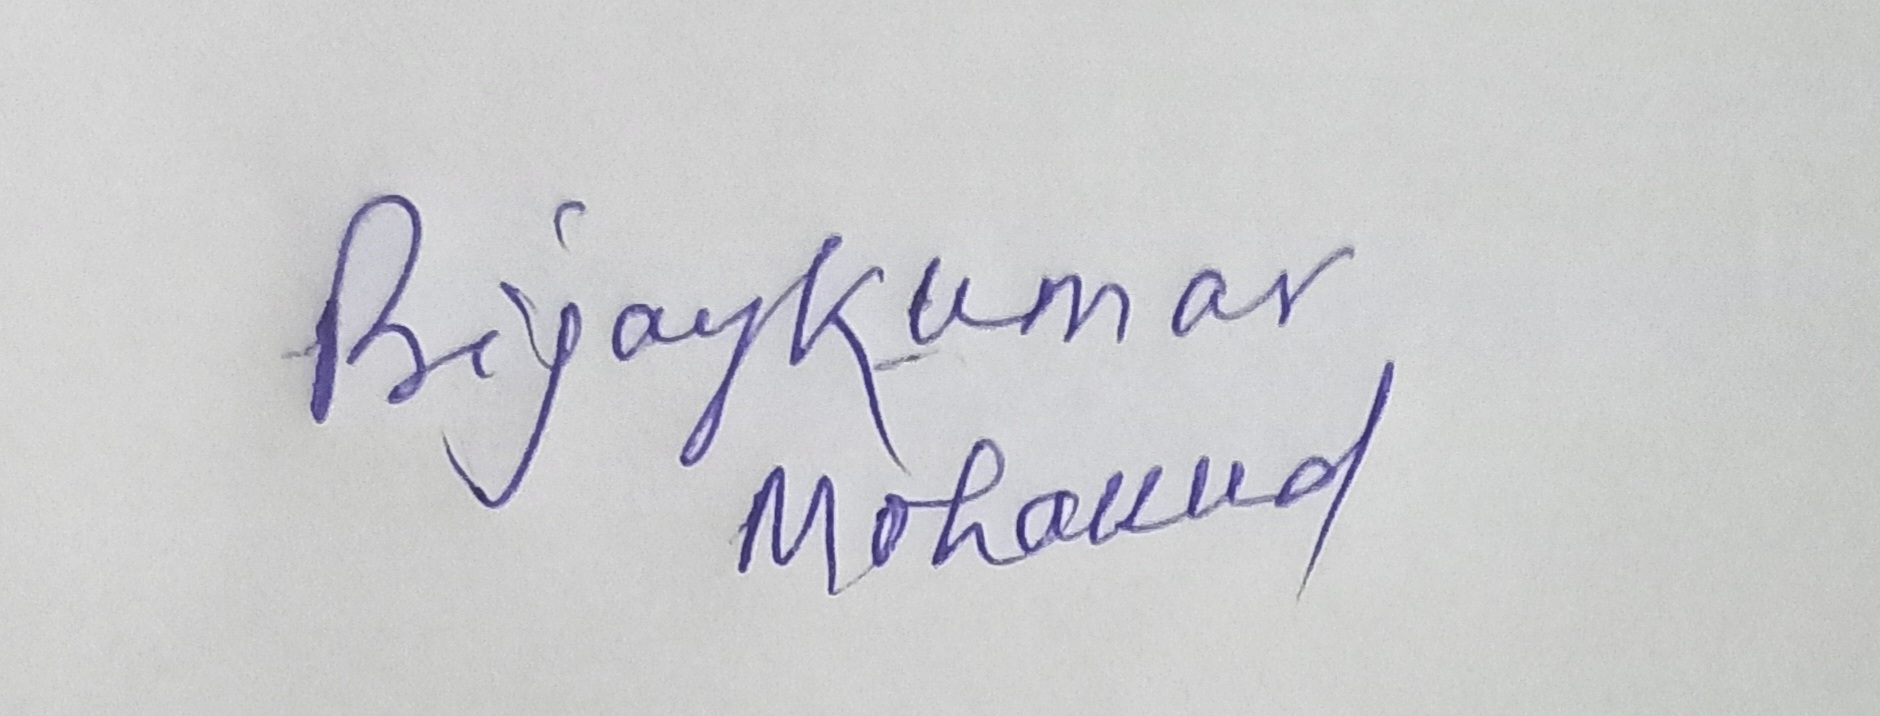 Bijaykumar
Mohakud